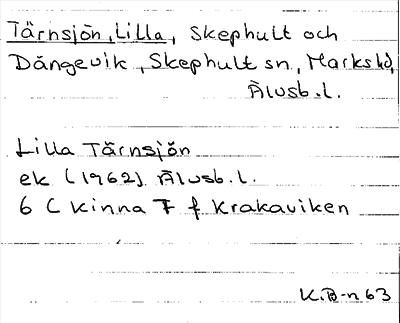 Tärnsjön, Lilla, Skephult och
Dångevik, Skephult sn, Marks hd,
Älvsb.l.
Lilla Tärnsjön
ek (1962) Älvsb.l.
6 C Kinna 7 f Krakaviken
K.B-n 63